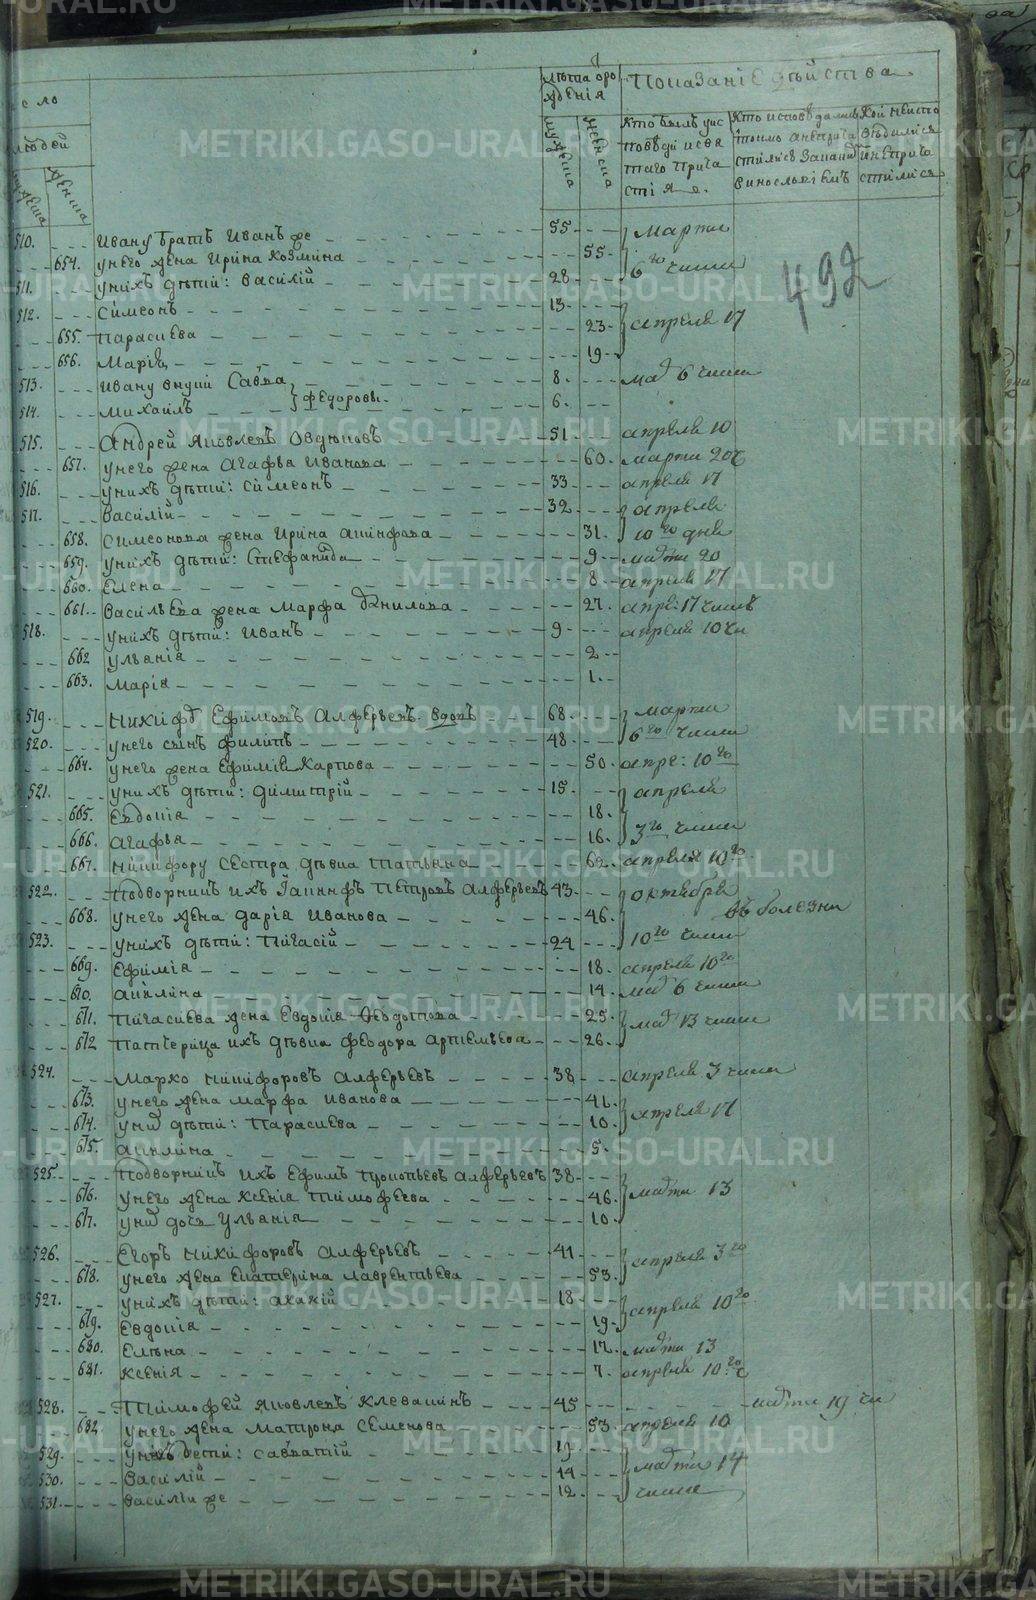 число
людей
мужеска
женска
Лѣта рождения
мужеска
женска
Показаніе дѣйства
Кто былъ у исповѣди и святаго причастія
Кто исповѣдались токмо а не причастились
Кои не исповѣдались и не причастились
492
510. Ивану братъ Иванъ же 55 марта
654. у него жена Ирина Козмина 55 6го числа
511. у нихъ дѣти: Василій 28
512. Симеонъ 13 апреля 17
655. Парасиева 23
656. Марія 19
513. Ивану внуки Савва 8 маія 6 числа
514. Михаилъ Федоровы 6
515. Андрей Яковлевъ Овдюковъ 51 апреля 10
657. у него жена Агафья Иванова 60 марта 20
516. у нихъ дѣти: Симеонъ 33 апреля 17
517. Василій 32 апреля
658. Симеонова жена Ирина 31 10го дня
659. у нихъ дѣти: Стефанида 9 марта 20
660. Елена 8 апреля 17
661. Васильева жена Марфа Данилова 27 апре: 17 числ
518. у нихъ дѣти: Иванъ 9 апреля 10 чи
662 Ульянія 2
663. Марія 1
519. Никифоръ Ефимовъ Алферьевъ вдовъ 68 марта
520. у него сынъ Филипъ 48 6го числа
664. у него жена Ефимия Карпова 50 апре: 10го
521. у нихъ дѣти: Димитрій 15 апреля
665. Евдокія 18
666. Агафья 16 3го числа
667. Никифору сестра дѣвка Татьяна 62 апреля 10го
522. Подворникъ ихъ Петровъ Алферьевъ 43 октября
въ болезни
668. у него жена Дарія Иванова 46
523. у нихъ дѣти: Пигасій 24 10го числа
669. Ефимія 18 апреля 10го
670. Акилина 14 маія 6 числа
671. Пигасиева жена Евдокія Феодотова 25 маія 13 числа
672 Патчерица ихъ дѣвка Феодора Артемьева 26
524. Марко Никифоровъ Алферьевъ 38 апреля 3 числа
673. у него жена Марфа Иванова 41
674. у них дѣти: Парасиева 10 апреля 17
675 Акилина 5
525. Подворникъ ихъ Ефимъ Прокопьевъ Алферьевъ 38
676. у него жена Ксенія Тимофеева 46 марта 13
677. у них дочь Ульянія 10
526. Егоръ Никифоровъ Алферьевъ 41 апреля 3го
678. у него жена Екатерина Лаврентьева 53
527. у нихъ дѣти: Акакій 18 апреля 10го
679. Евдокія 19
680. Елѣна 12 марта 13
681. Ксенія 7 апреля 10го
528. Тимофей Яковлевъ Клевакинъ 45 марта 19 чи
682 у него жена Матрона Семенова 53 апреля 10
529. у нихъ дети: Савватій 19 марта 14
530. Василій 14
531. Василіи же 12 числа
METRIKI.GASO-URAL.RU